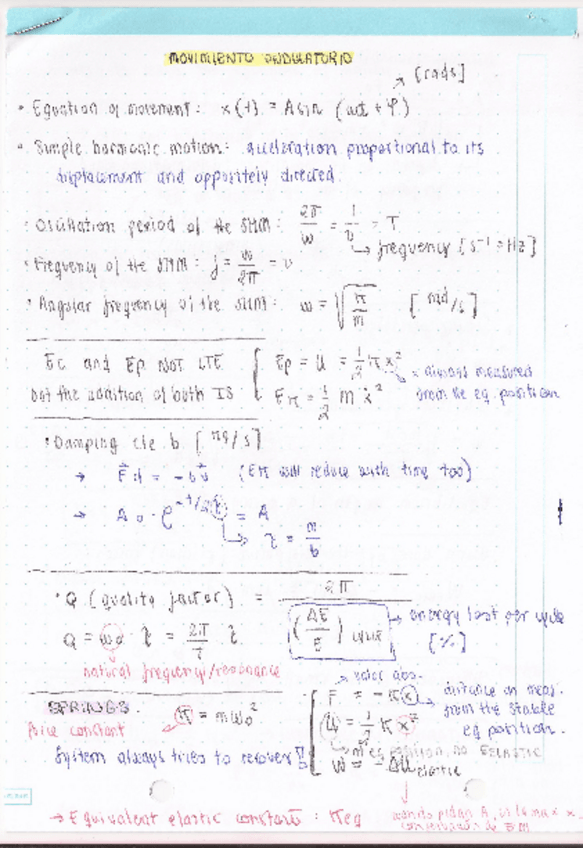 MOVIMIENTO ONDULATORIO
[rads]
• Equation of movement: x(t) = A sin (ωt + φ)
• Simple harmonic motion: acceleration proportional to its
displacement and oppositely directed.
• Oscillation period of the SHM: 2π/ω = 1/υ = T
↳ frequency [s⁻¹ = Hz]
• Frequency of the SHM: f = ω/2π = υ
• Angular frequency of the SHM: ω = √(K/m) [rad/s]
Ec and Ep NOT CTE
but the addition of both IS
Ep = U = 1/2 K x²
EK = 1/2 m ẋ²
x always measured
from the eq. position
• Damping cte b [Kg/s]
→ Fd = -bv (EK will reduce with time too)
→ A₀ · e^(-t/2τ) = A
↳ τ = m/b
• Q (quality factor) = 2π / (ΔE/E) cycle
→ energy lost per cycle
[%]
Q = ω₀ τ = 2π/T τ
natural frequency/resonance
SPRINGS
K = mω₀²
force constant
System always tries to recover
→ valor abs.
F = -Kx
→ distance an meas.
from the stable
eq position.
U = 1/2 K x²
eq position no ELASTIC
W = -ΔU elastic
→ Equivalent elastic constant: Keq
cuando pidan A, es la max x